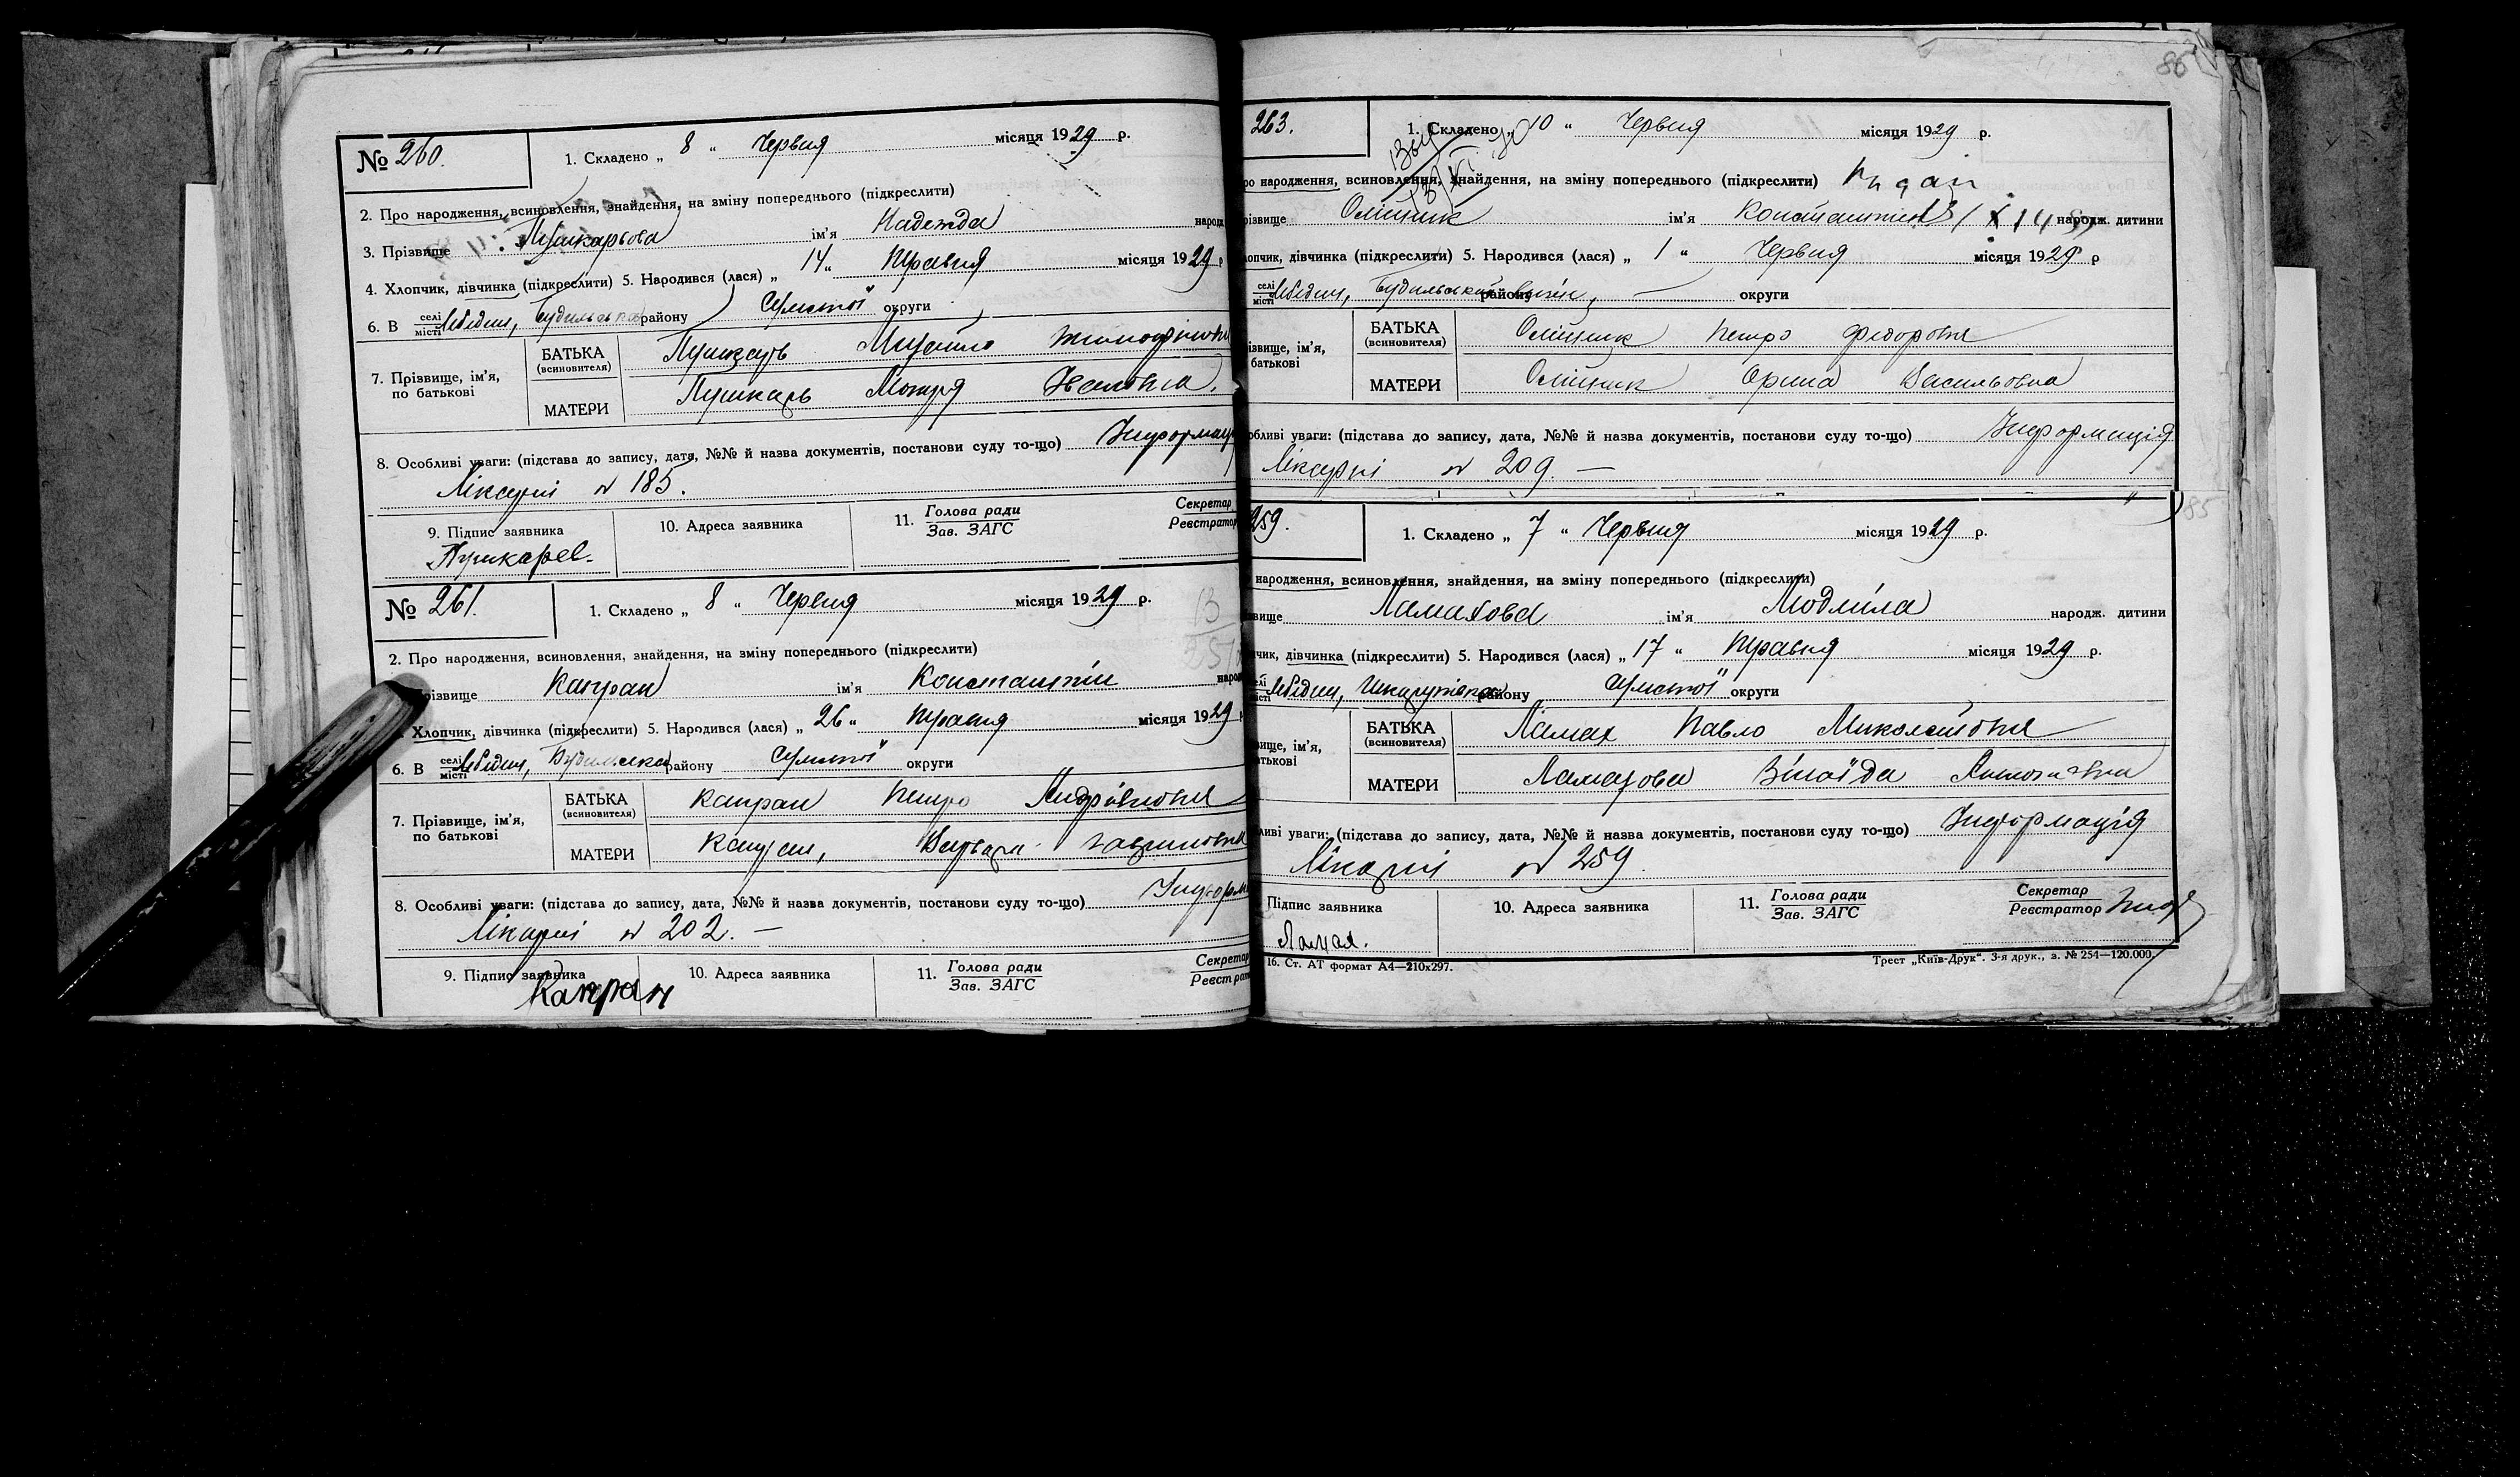 № 260. 1. Складено „ 8 “ Червня місяця 1929 р.
2. Про народження, всиновлення, знайдення, на зміну попереднього (підкреслити)
3. Прізвище Пушкарьова ім'я Надежда народ
4. Хлопчик, дівчинка (підкреслити) 5. Народився (лася) „ 14 “ травня місяця 1929 р
6. В селі місті Лебедин, району Сумської округи
7. Прізвище, ім'я, по батькові
БАТЬКА (всиновителя) Пушкарь Михайло
МАТЕРИ Пушкарь Мотря Іванівна.
8. Особливі уваги: (підстава до запису, дата, №№ й назва документів, постанови суду то-що) Інформац
Лікарні № 185.
9. Підпис заявника 10. Адреса заявника 11. Голова ради Зав. ЗАГС Секретар Реєстратор
Пушкарев.
№ 261. 1. Складено „ 8 “ Червня місяця 1929 р.
2. Про народження, всиновлення, знайдення, на зміну попереднього (підкреслити)
різвище Капран ім'я Константін народ
Хлопчик, дівчинка (підкреслити) 5. Народився (лася) „ 26 “ травня місяця 1929
6. В селі місті Лебедин, району Сумської округи
7. Прізвище, ім'я, по батькові
БАТЬКА (всиновителя) Капран Петро Андріївич
МАТЕРИ Капран, Варвара
8. Особливі уваги: (підстава до запису, дата, №№ й назва документів, постанови суду то-що) Інформ
Лікарні № 202. —
9. Підпис заявника 10. Адреса заявника 11. Голова ради Зав. ЗАГС Секретар Реєстрат
Капран
86
263. 1. Складено „ 10 “ Червня місяця 1929 р.
ро народження, всиновлення, знайдення, на зміну попереднього (підкреслити)
різвище Олійник ім'я Константин народж. дитини
лопчик, дівчинка (підкреслити) 5. Народився (лася) „ 1 “ Червня місяця 1929 р
селі місті Лебедин, Будильський району округи
ізвище, ім'я, батькові
БАТЬКА (всиновителя) Олійник Петро Федорович
МАТЕРИ Олійник Орина Васильовна
обливі уваги: (підстава до запису, дата, №№ й назва документів, постанови суду то-що) Інформація
Лікарні № 209. —
85
259. 1. Складено „ 7 “ Червня місяця 1929 р.
народження, всиновлення, знайдення, на зміну попереднього (підкреслити)
вище Ламахова ім'я Людміла народж. дитини
чик, дівчинка (підкреслити) 5. Народився (лася) „ 17 “ травня місяця 1929 р.
місті Лебедин, району Сумської округи
вище, ім'я, атькові
БАТЬКА (всиновителя) Ламах Павло Миколайович
МАТЕРИ Ламахова Зінаїда
ливі уваги: (підстава до запису, дата, №№ й назва документів, постанови суду то-що) Інформація
Лікарні № 259.
Підпис заявника 10. Адреса заявника 11. Голова ради Зав. ЗАГС Секретар Реєстратор
Ламах.
16. Ст. АТ формат А4—210х297. Трест „Київ-Друк“. 3-я друк., з. № 254—120.000.